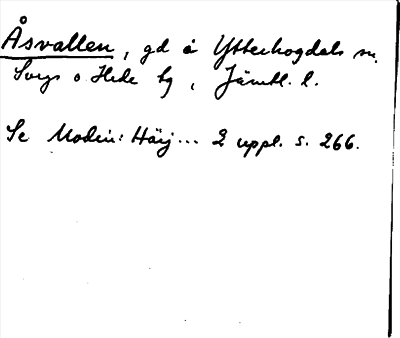 Åsvallen, gd i Ytterhogdals sn.
Svegs o. Hede tg, Jämtl. l.
Se Modin: Härj... 2 uppl. s. 266.